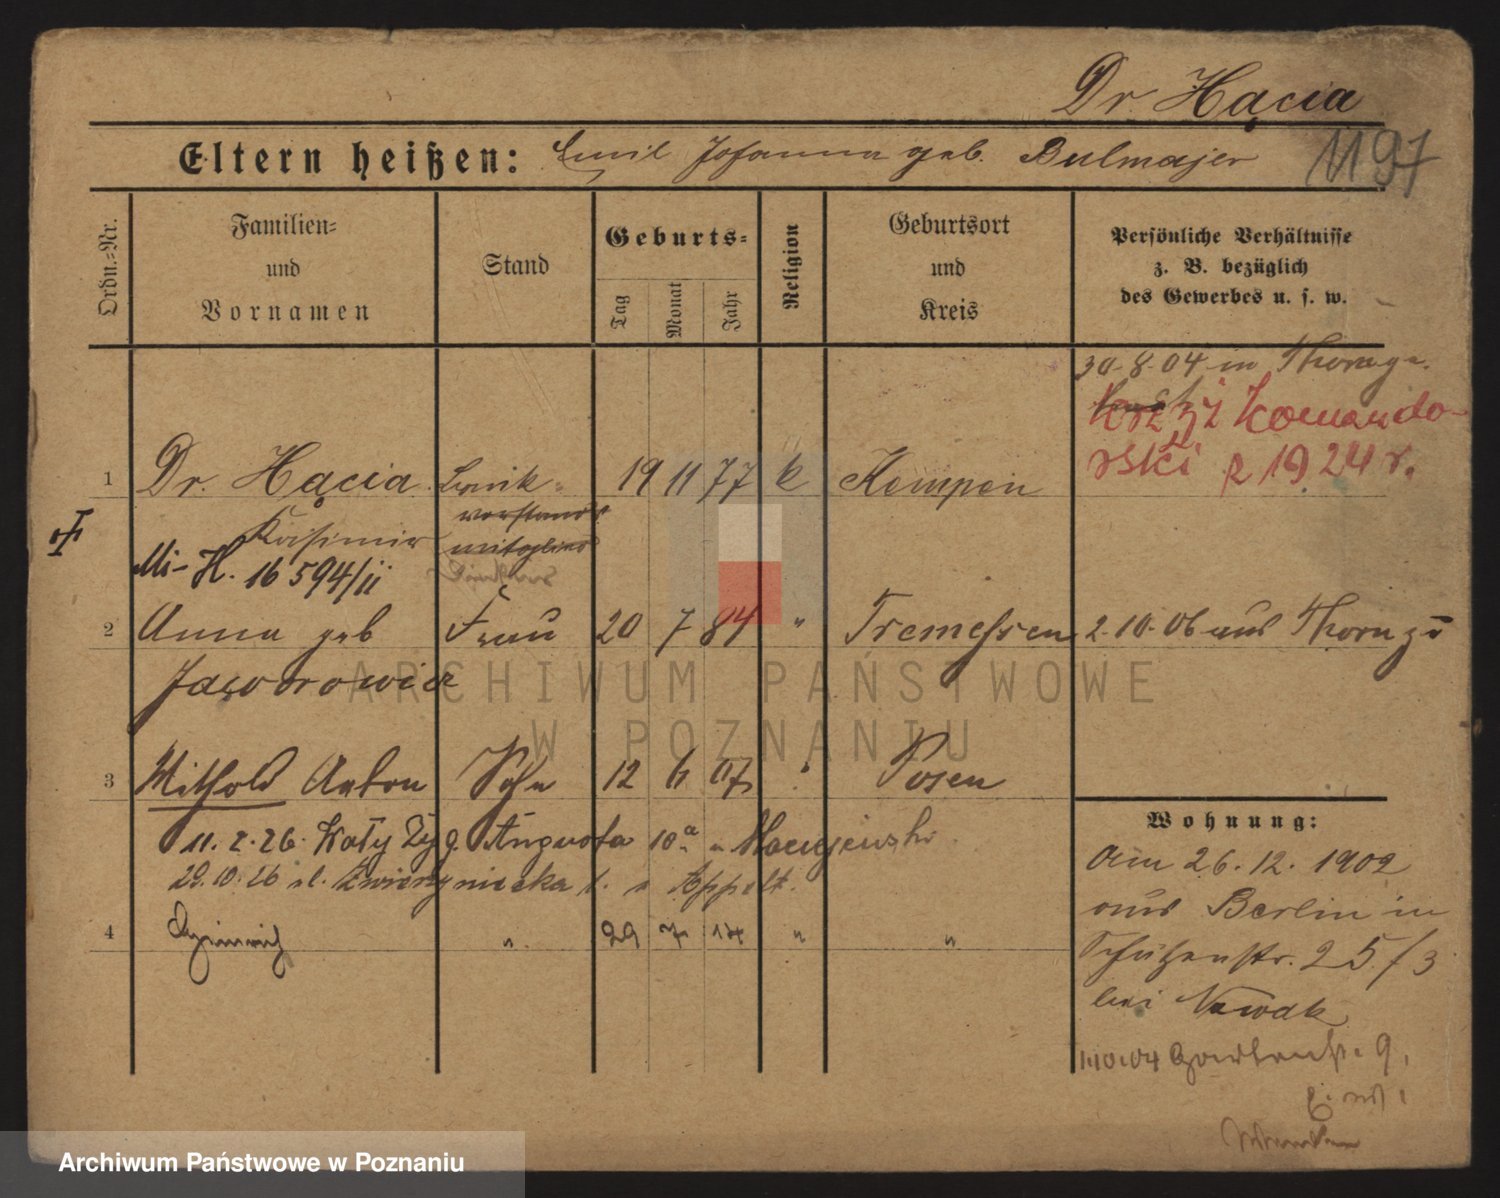 Dr. Hącia
1197
Eltern heißen: Emil Johanna geb. Bulmajer
Ordn.-Nr.
Familien- und Vornamen
Stand
Geburts-
Tag
Monat
Jahr
Religion
Geburtsort und Kreis
Persönliche Verhältnisse
z. B. bezüglich
des Gewerbes u. s. w.
30.8.04 in Thorn
Krzyż Komando-
rski z 1924 r.
1 Dr. Hącia Bank- 19 11 77 k Kempen
Kasimir vorstands
mitglied
Mi-H. 16594/ii
2 Anna geb Frau 20 7 84 " Tremessen 2.10.06 aus Thorn
Jaworowicz
3 Withold Anton Sohn 12 07 " Posen
11.2.26. Augusta 10a
29.10.26 ul. Zwierzyniecka Appelt.
4 Heinrich " 29 7 14 " "
Wohnung:
Am 26.12.1902
aus Berlin in
Schützenstr. 25/3
bei Nowak
1.10.04 Gartenstr. 9.
ARCHIWUM PAŃSTWOWE
W POZNANIU
Archiwum Państwowe w Poznaniu